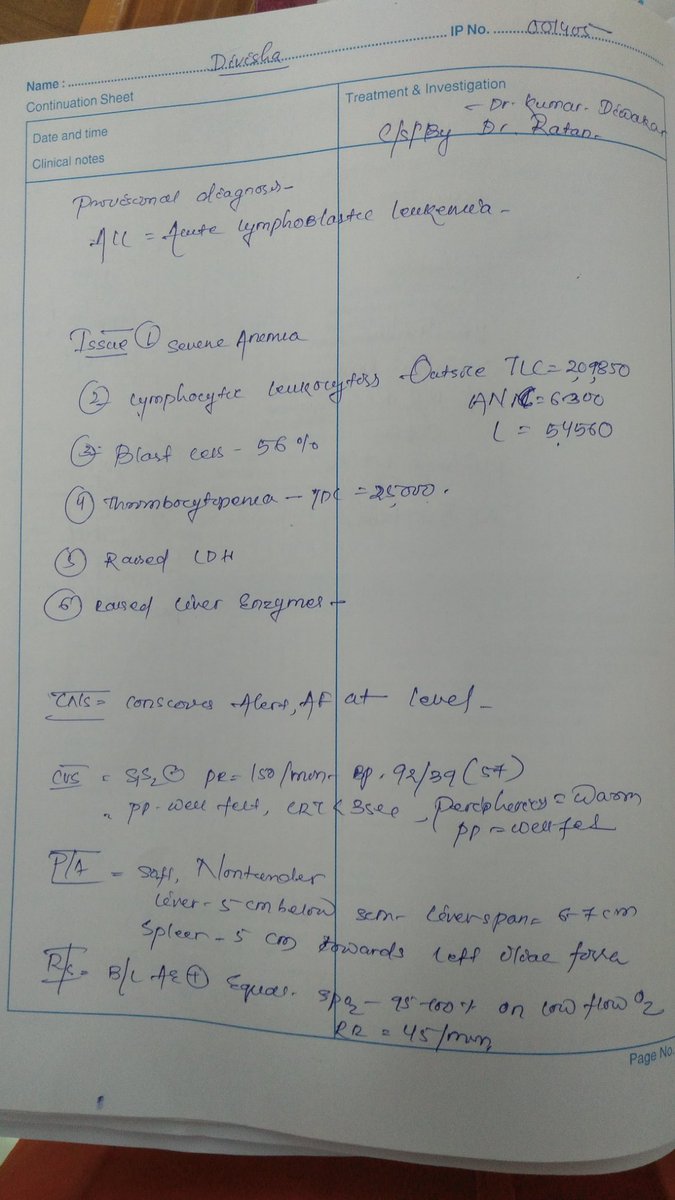 Name : Divisha IP No. 001405
Continuation Sheet
Treatment & Investigation
- Dr. Kumar. Diwakar
Date and time
C/S/By Dr. Ratan.
Clinical notes
Provisional diagnosis-
ALL = Acute Lymphoblastic leukemia -
Issue ① Severe Anemia
② Lymphocytic leukocytosis - Outside TLC = 209850
ANC = 6300
L = 54560
③ Blast cells - 56 %
④ Thrombocytopenia - = 25000.
⑤ Raised LDH
⑥ Raised liver Enzymes -
CNS = conscious Alert, AF at level -
CVS = S1S2 + PR = 150/min - BP. 92/39 (57)
pp - well felt, CRT < 3sec - Peripheries = Warm
PP = well felt
P/A = Soft, Nontender
Liver - 5 cm below scm - Liver span = 6-7 cm
Spleen - 5 cm towards left iliac fossa
R/S = B/L AE + Equal. SpO2 - 95-100 % on low flow O2
RR = 45/min
Page No.